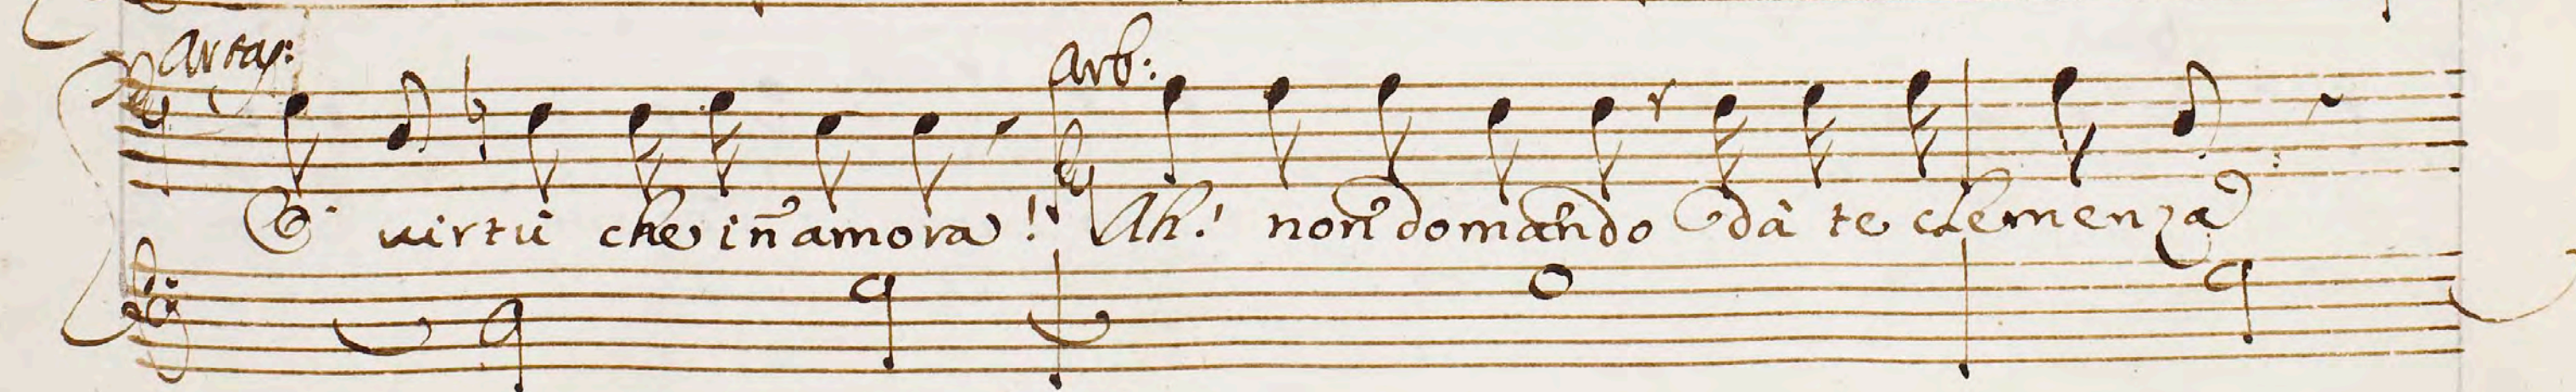 Artas: Arb:
È virtù che in̄amora! Ah! non domando da te clemenza